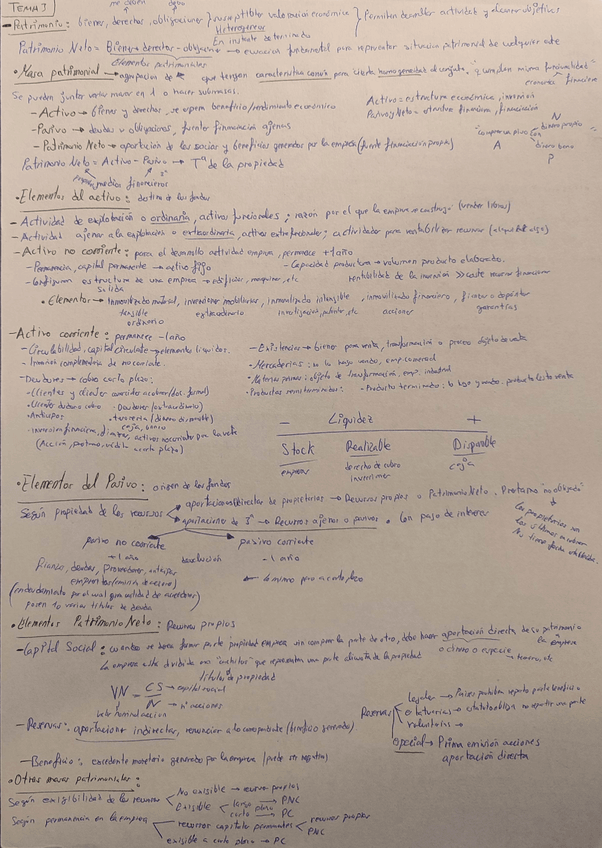 TEMA 1
me deben debo
- Patrimonio: bienes, derechos, obligaciones } susceptibles valoración económica } Permiten desarrollar actividad y alcanzar objetivos
Heterogéneos
En instante determinado
Patrimonio Neto = Bienes + derechos - obligaciones → ecuación fundamental para representar situación patrimonial de cualquier ente
Elementos patrimoniales
• Masa patrimonial → agrupación de que tengan característica común para cierta homogeneidad al conjunto. "y cumplan misma funcionalidad"
económica financiera
Se pueden juntar varias masas en 1 o hacer submasas.
- Activo → bienes y derechos, se espera beneficio/rendimiento económico
Activo = estructura económica, inversión
Pasivo y Neto = estructura financiera, financiación
- Pasivo → deudas u obligaciones, fuentes financiación ajenas
- Patrimonio Neto → aportación de los socios y beneficios generados por la empresa (fuente financiación propia)
"compro un piso con
N
dinero propio
A
dinero banco
P
Patrimonio Neto = Activo - Pasivo → Tª de la propiedad
medios financieros
• Elementos del activo: destino de los fondos
- Actividad de explotación o ordinaria, activos funcionales; razón por el que la empresa se construyó (vender libros)
- Actividad ajena a la explotación o extraordinaria, activos extrafuncionales; actividades para rentabilizar recursos (alquilable algo)
- Activo no corriente: para el desarrollo actividad empresa, permanece +1 año
- Permanencia, capital permanente → activo fijo
- Capacidad productiva → volumen producto elaborado.
- Configuran estructura de una empresa → edificios, maquinas, etc
rentabilidad de la inversión >> coste recursos financieros
Solida
• Elementos → Inmovilizado material, inversiones inmobiliarias, inmovilizado intangible, inmovilizado financiero, fianzas o depósitos
tangible
ordinario
extraordinario
investigación, patente, etc
acciones
garantías
- Activo corriente: permanece -1 año
- Circulabilidad, capital circulante → elementos líquidos.
- Inversión complementaria de no corriente.
- Deudores → cobro corto plazo:
- Existencias → bienes para venta, transformación o proceso objeto de venta
- Mercaderías: no lo hago vendo, emp. comercial
- Materias primas: objeto de transformación, emp. industrial
- Productos semiterminados:
- Producto terminados: lo hago y vendo; producto listo venta
- Clientes y clientes
- Deudores (extraordinario)
- Anticipos
- tesorería (dinero disponible)
caja, banco
- Inversión financiera, fianzas, activos no corrientes para la venta
- Liquidez +
Stock Realizable Disponible
derecho de cobro
inversiones
caja
• Elementos del Pasivo: origen de los fondos
Según propiedad de los recursos
aportaciones directas de propietarios → Recursos propios o Patrimonio Neto. "no obligado"
aportaciones de 3º → Recursos ajenos o pasivos. Con paso de interés
los propietarios son
los últimos en cobrar
No tiene fecha establecida.
pasivo no corriente pasivo corriente
+1 año devolución -1 año
fianza, deudas, proveedores, anticipos
← lo mismo pero a corto plazo
• Elementos Patrimonio Neto: Recursos propios
- Capital Social: cuando se desea formar parte propiedad empresa sin comprar la parte de otro, debe hacer aportación directa de su patrimonio
a la empresa
o dinero o especie
→ terreno, etc
La empresa esta dividida en "cachitos" que representan una parte alícuota de la propiedad
títulos de propiedad
VN = CS → capital social
Nº → nº acciones
valor nominal acción
- Reservas: aportaciones indirectas, renunciar a lo correspondiente (beneficio generado)
Reservas
legales → Países prohíben reparto parte beneficio
estatutarias → estatuto obliga no repartir una parte
voluntarias →
especial → Prima emisión acciones
aportación directa
- Beneficio: excedente monetario generado por la empresa (puede ser negativo)
• Otras masas patrimoniales:
Según exigibilidad de los recursos
No exigible → recursos propios
Exigible
largo plazo → PNC
corto → PC
Según permanencia en la empresa
recursos capitales permanentes
recursos propios
PNC
exigible a corto plazo → PC